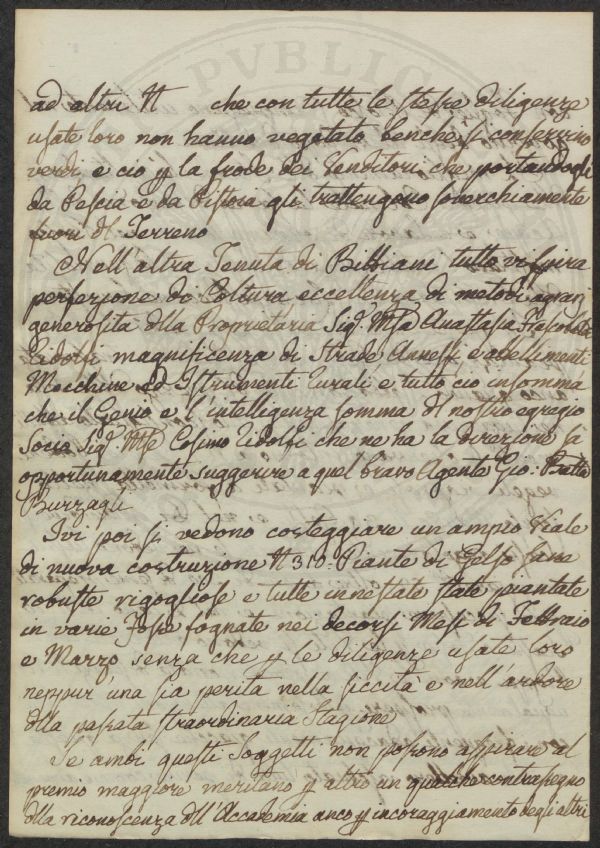 PVBLIC
ad altri N che con tutte le stesse diligenze
usate loro non hanno vegetato benche si conservino
verdi e ciò p la frode dei Venditori che portandogli
da Pescia e da Pistoia gli trattengono soverchiamente
fuori dl Terreno
Nell'altra Tenuta di Bibbiani tutto vi spira
perfezione di Coltura eccellenza di metodi agrarj
generosità dlla Proprietaria Sigra Mssa Anastasia Frescobaldi
Ridolfi magnificenza di Strade Annessi e abbellimenti
Macchine ed Istrumenti rurali e tutto ciò insomma
che il Genio e l'intelligenza somma dl nostro egregio
Socio Sigre Mse Cosimo Ridolfi che ne ha la direzione sa
opportunamente suggerire a quel bravo Agente Gio: Batta
Buzzagli
Ivi poi si vedono costeggiare un ampio Viale
di nuova costruzione N 310. Piante di Gelso sane
robuste rigogliose e tutte innestate state piantate
in varie Fosse fognate nei decorsi Mesi di Febbraio
e Marzo senza che p le diligenze usate loro
neppur' una sia perita nella siccità e nell'ardore
dlla passata straordinaria Stagione
Se ambi questi Soggetti non possono aspirare al
premio maggiore meritano p altro un qualche contrasegno
dlla riconoscenza dll'Accademia anco p incoraggiamento degli altri